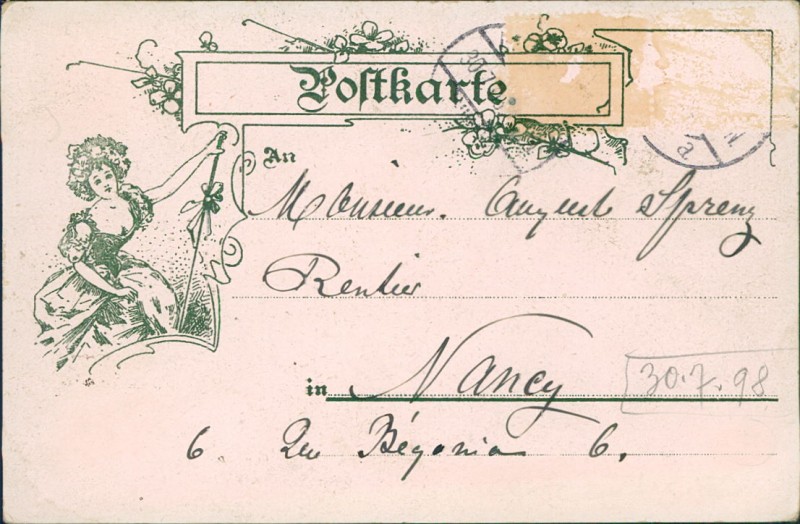 Postkarte
An
Monsieur. August Spreng
Rentier
in Nancy
30.7.98
6 Bégonia 6.